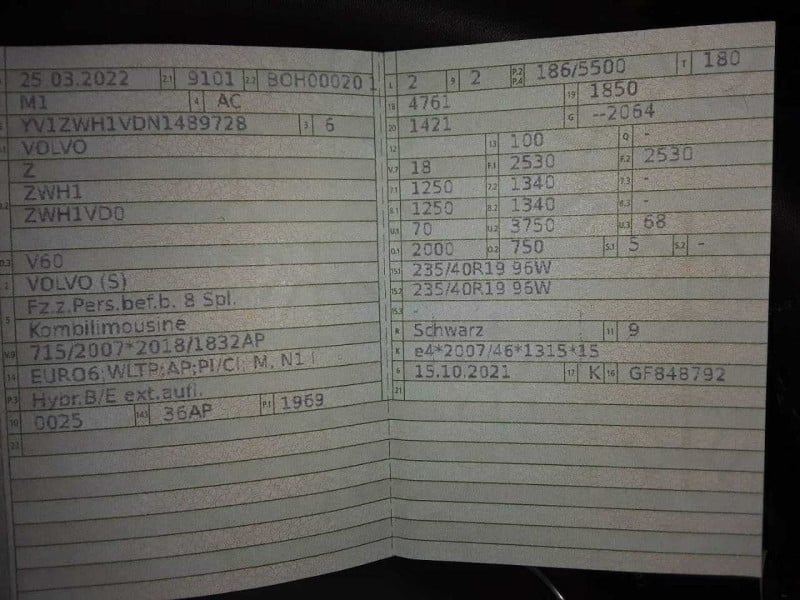 25 03.2022 2.1 9101 2.2 BOH00020 1
M1 4 AC
YV1ZWH1VDN1489728 3 6
VOLVO
Z
ZWH1
ZWH1VD0
D.3 V60
2 VOLVO (S)
5 Fz.z.Pers.bef.b. 8 Spl.
Kombilimousine
V.9 715/2007*2018/1832AP
14 EURO6;WLTP;AP;PI/CI; M, N1 I
P.3 Hybr.B/E ext.aufl.
10 0025 14.1 36AP P.1 1969
22
L 2 9 2 P.2 P.4 186/5500 T 180
18 4761 19 1850
20 1421 G --2064
12 13 100 Q -
V.7 18 F.1 2530 F.2 2530
7.1 1250 7.2 1340 7.3 -
8.1 1250 8.2 1340 8.3 -
U.1 70 U.2 3750 U.3 68
O.1 2000 O.2 750 S.1 5 S.2 -
15.1 235/40R19 96W
15.2 235/40R19 96W
15.3 -
R Schwarz 11 9
K e4*2007/46*1315*15
6 15.10.2021 17 K 16 GF848792
21